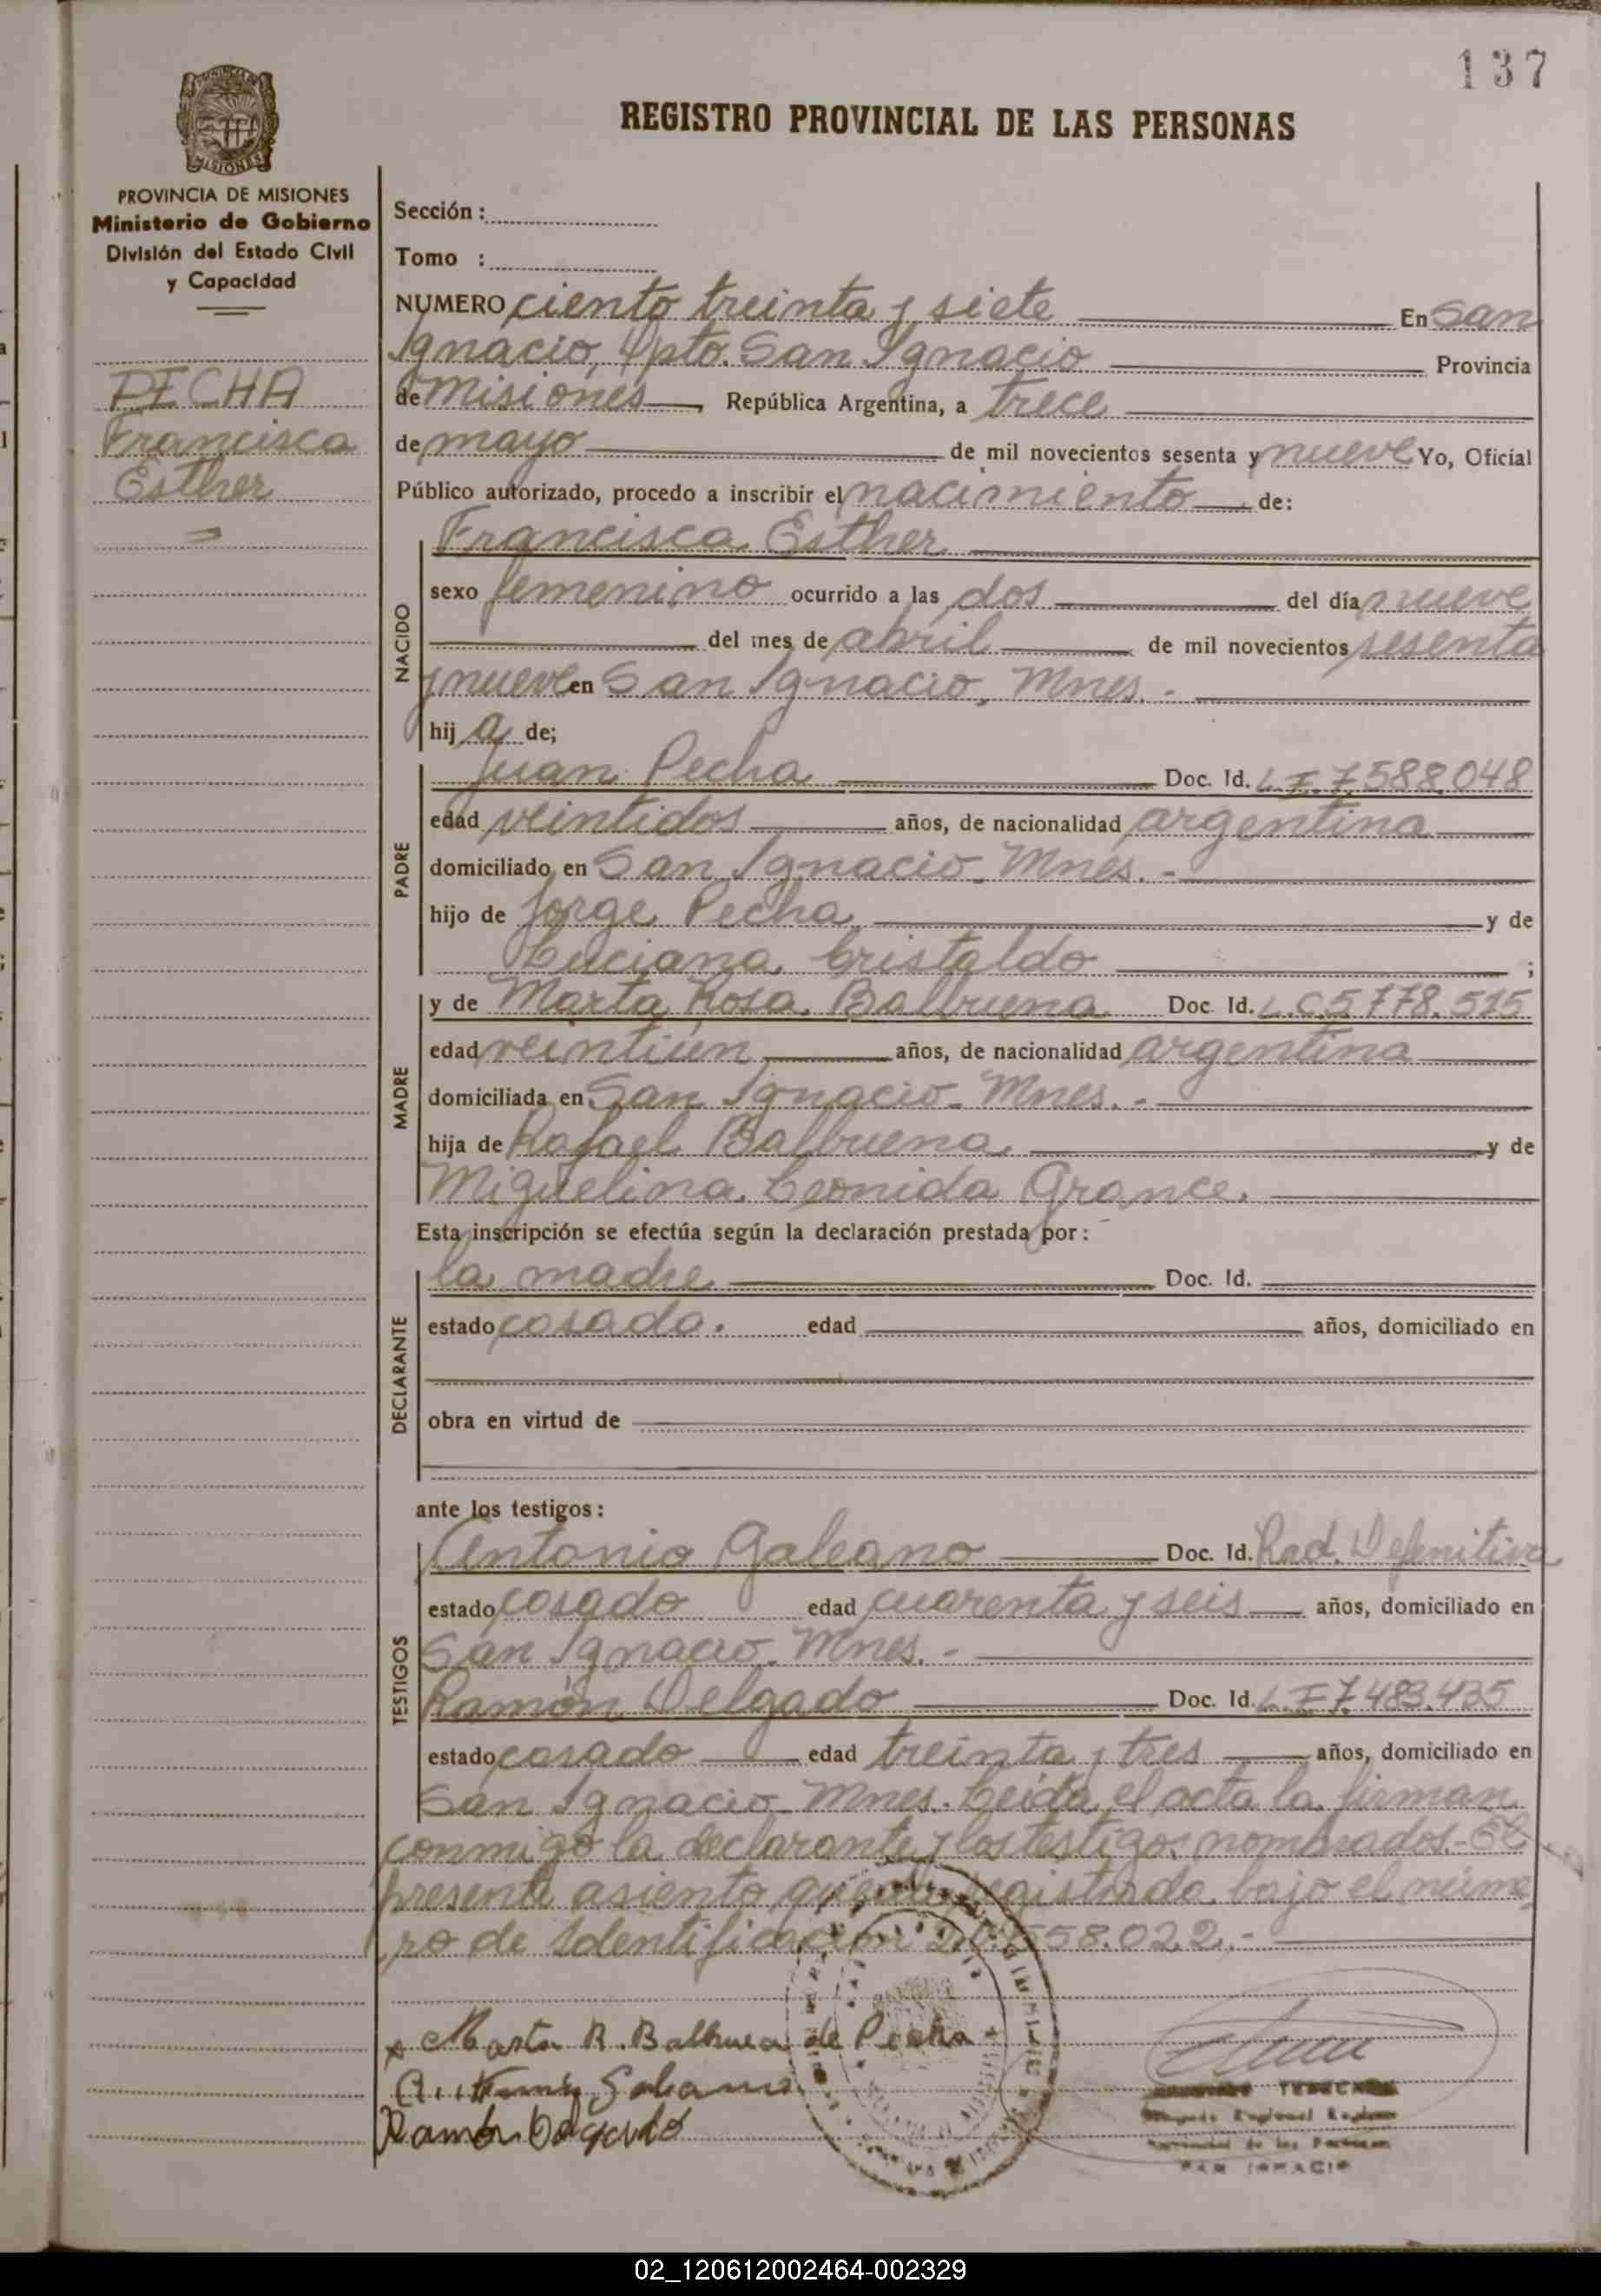 137
REGISTRO PROVINCIAL DE LAS PERSONAS
PROVINCIA DE MISIONES
Ministerio de Gobierno
División del Estado Civil
y Capacidad
PECHA
Francisca
Esther
Sección :
Tomo :
NUMERO ciento treinta y siete En San
Ignacio, Dpto. San Ignacio Provincia
de Misiones República Argentina, a trece
de mayo de mil novecientos sesenta y nueve Yo, Oficial
Público autorizado, procedo a inscribir el nacimiento de:
Francisca Esther
NACIDO
sexo femenino ocurrido a las dos del día nueve
del mes de abril de mil novecientos sesenta
y nueve en San Ignacio, Mnes. -
hij a de;
PADRE
Juan Pecha Doc. Id. L.E. 7.588.048
edad veintidos años, de nacionalidad argentina
domiciliado en San Ignacio - Mnes. -
hijo de Jorge Pecha y de
Luciana Cristaldo ;
MADRE
y de Marta Rosa Balbuena Doc. Id. L.C. 5.778.515
edad veintiún años, de nacionalidad argentina
domiciliada en San Ignacio - Mnes. -
hija de Rafael Balbuena y de
Miguelina Leonida Grance.
Esta inscripción se efectúa según la declaración prestada por :
DECLARANTE
la madre Doc. Id.
estado casada. edad años, domiciliado en
obra en virtud de
ante los testigos :
TESTIGOS
Antonio Galeano Doc. Id. Rad. Definitiva
estado casado edad cuarenta y seis años, domiciliado en
San Ignacio - Mnes. -
Ramón Delgado Doc. Id. L.E. 7.483.435
estado casado edad treinta y tres años, domiciliado en
San Ignacio - Mnes. Leída el acta la firman
conmigo la declarante y los testigos nombrados. - El
presente asiento queda registrado bajo el núme
ro de Identificación 20.558.022. -
x Marta R. Balbuena de Pecha
Galeano
Ramón Delgado
SAN IGNACIO
02_120612002464-002329